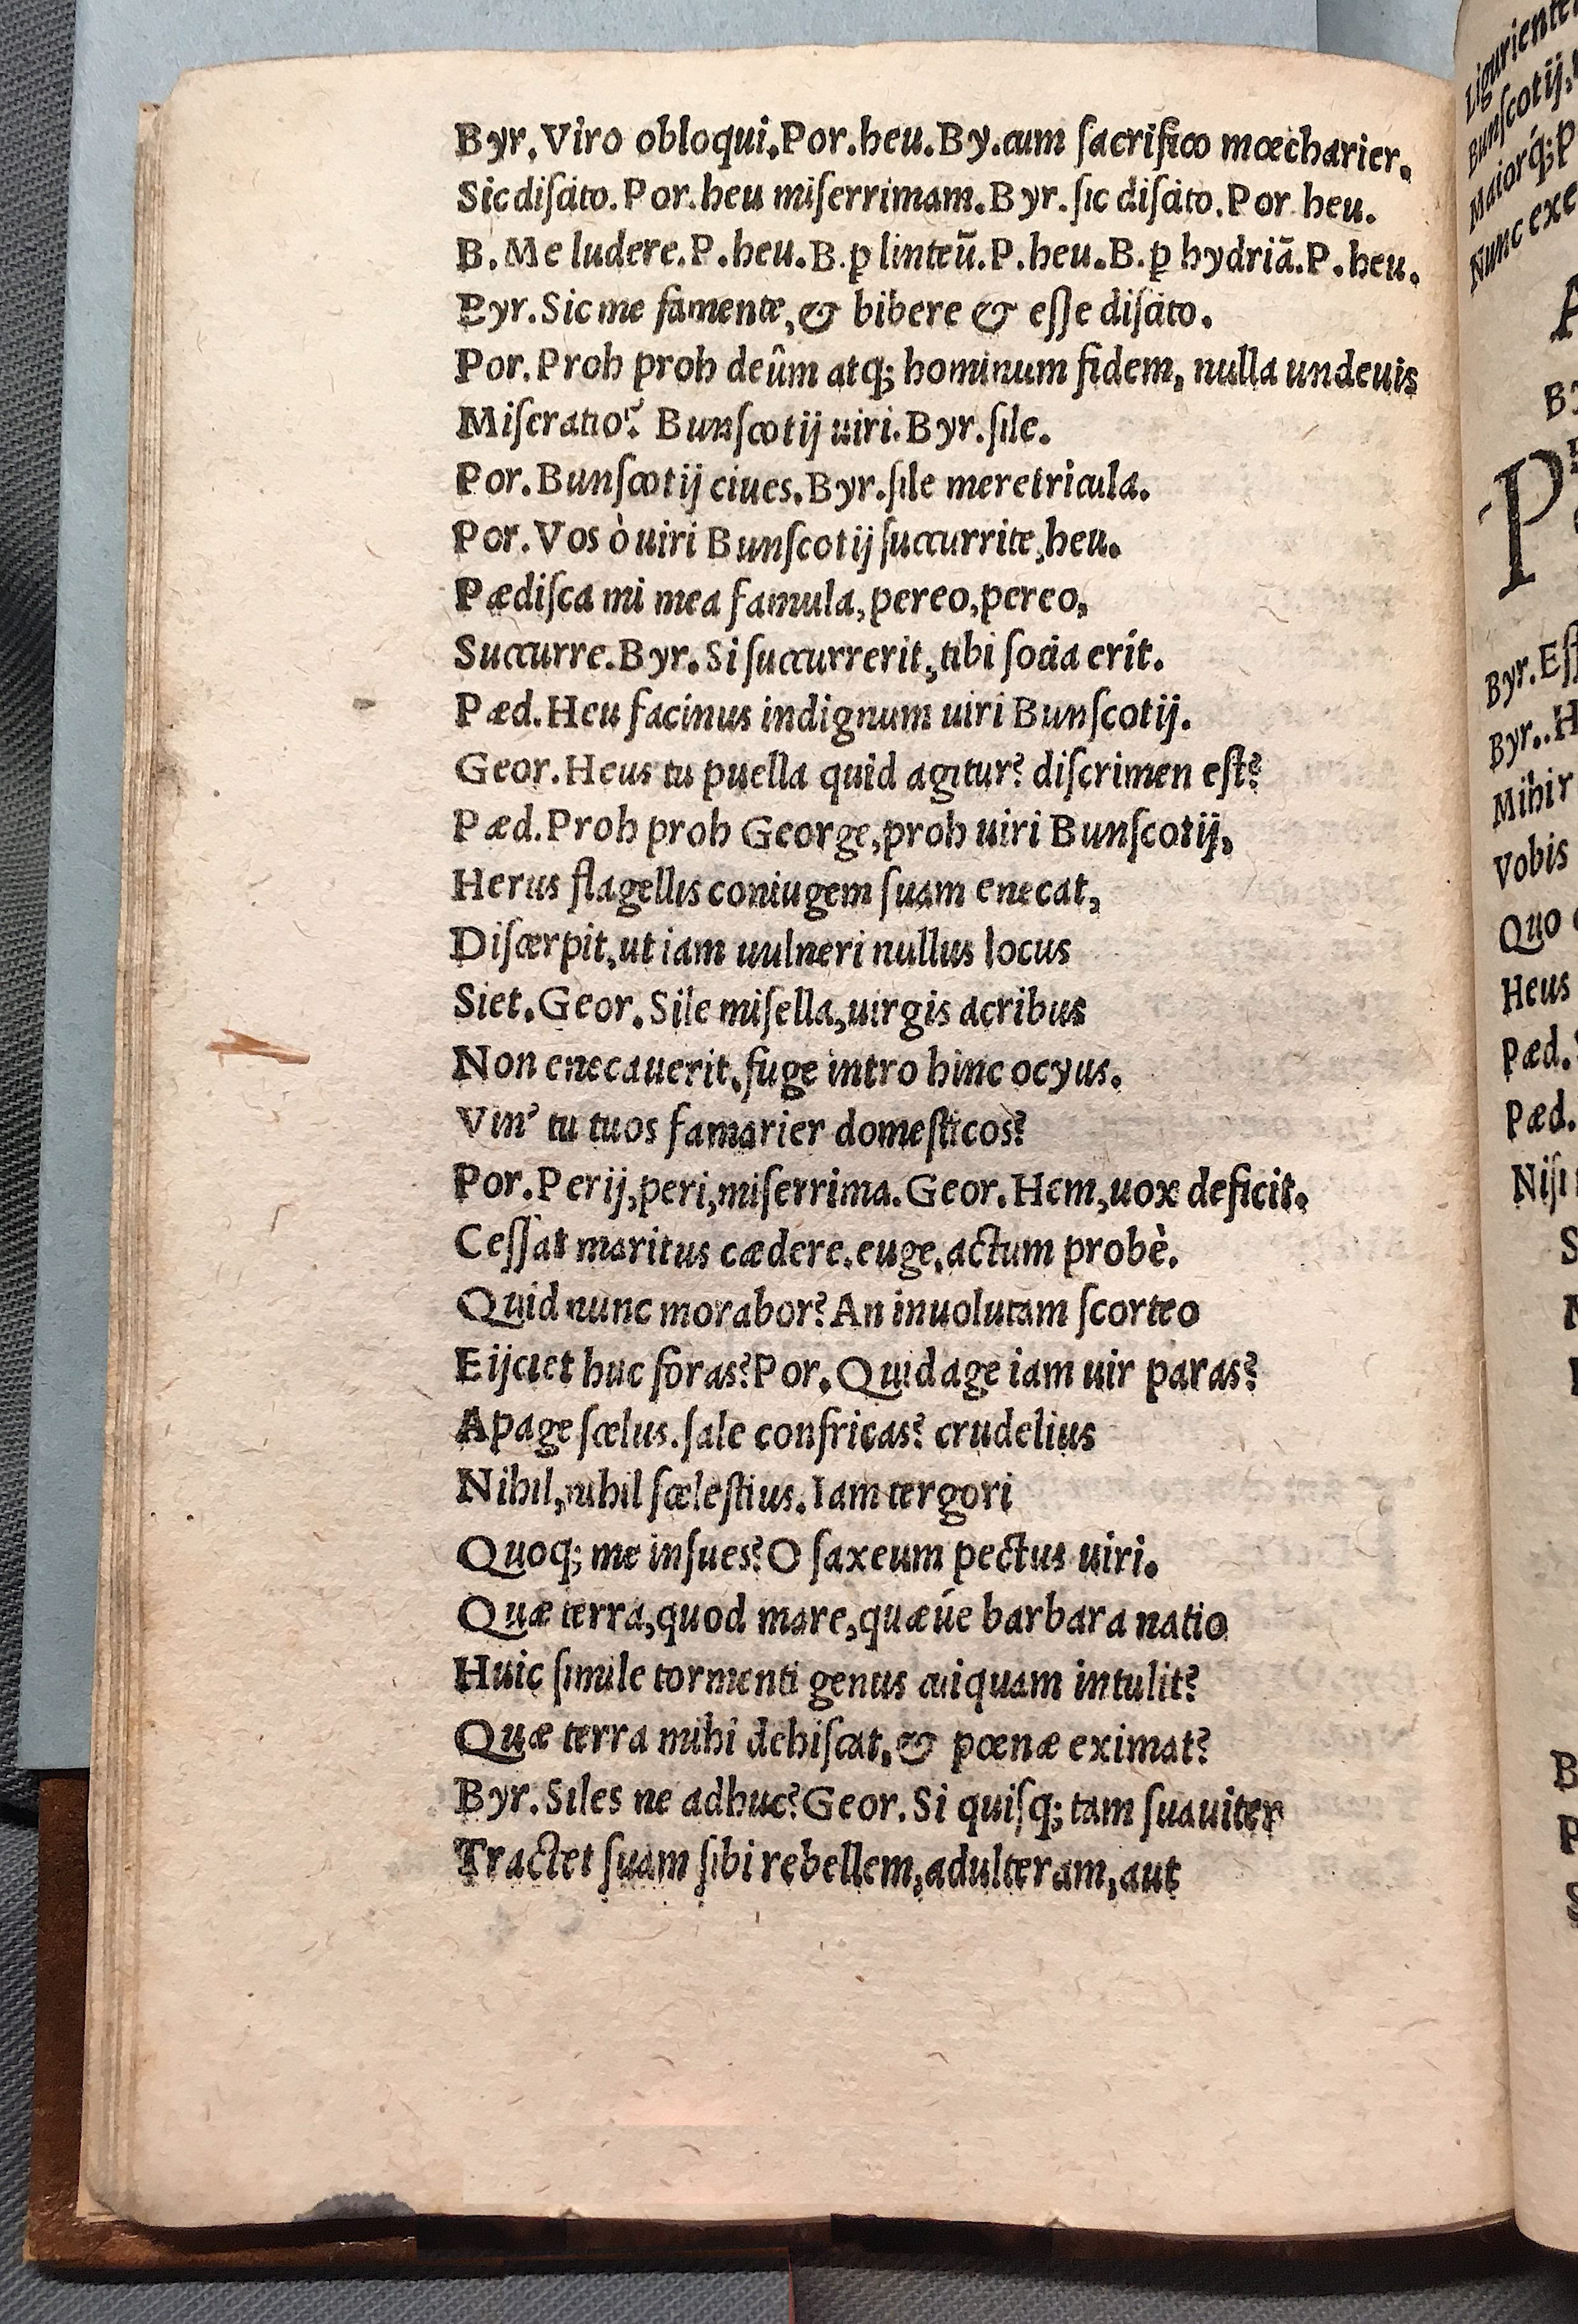 Byr. Viro obloqui. Por. heu. By. cum sacrifico mœcharier.
Sic discito. Por. heu miserrimam. Byr. sic discito. Por heu.
B. Me ludere. P. heu. B. ꝑ linteū. P. heu. B. ꝑ hydriā. P. heu.
Byr. Sic me famente, & bibere & esse discito.
Por. Proh proh deûm atq; hominum fidem, nulla undeuis
Miseratio? Bunscotij uiri. Byr. sile.
Por. Bunscotij ciues. Byr. sile meretricula.
Por. Vos ò uiri Bunscotij succurrite, heu.
Pædisca mi mea famula, pereo, pereo,
Succurre. Byr. Si succurrerit, tibi socia erit.
Pæd. Heu facinus indignum uiri Bunscotij.
Geor. Heus tu puella quid agitur? discrimen est?
Pæd. Proh proh George, proh uiri Bunscotij,
Herus flagellis coniugem suam enecat,
Discerpit, ut iam uulneri nullus locus
Siet. Geor. Sile misella, uirgis acribus
Non enecauerit, fuge intro hinc ocyus.
Vin' tu tuos famarier domesticos?
Por. Perij, peri, miserrima. Geor. Hem, uox deficit.
Cessat maritus cædere. euge, actum probè.
Quid nunc morabor? An inuolutam scorteo
Eijciet huc foras? Por. Quid age iam uir paras?
Apage scelus. sale confricas? crudelius
Nihil, nihil scelestius. Iam tergori
Quoq; me insues? O saxeum pectus uiri.
Quæ terra, quod mare, quæúe barbara natio
Huic simile tormenti genus cuiquam intulit?
Quæ terra mihi dehiscat, & pœnæ eximat?
Byr. Siles ne adhuc? Geor. Si quisq; tam suauiter
Tractet suam sibi rebellem, adulteram, aut
Ligurient
Bunscotij,
Maiorq́;
Nunc exe
Byr. Ess
Byr..H
Mihi r
Vobis
Quo
Heus
Pæd.
Pæd.
Nisi